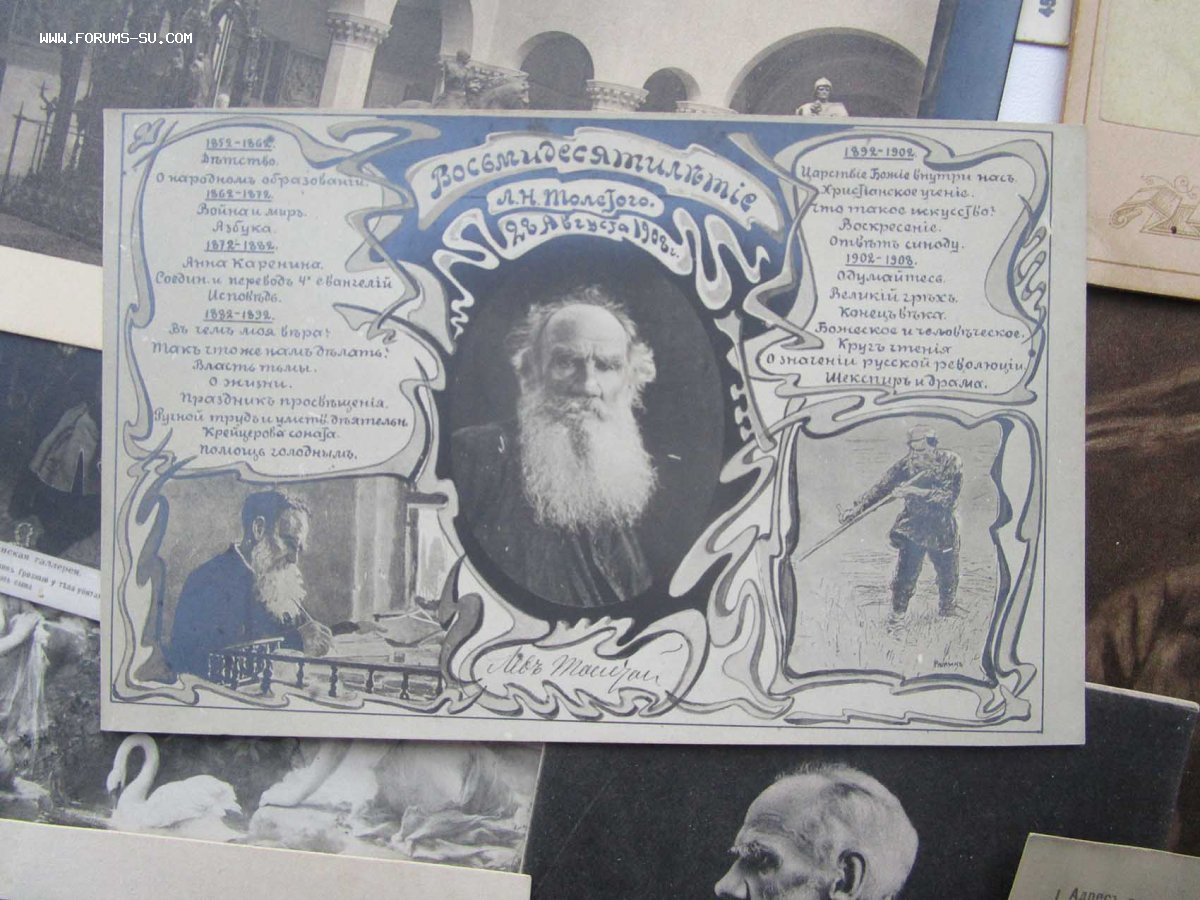 WWW.FORUMS-SU.COM
1852-1862.
Дѣтство.
О народномъ образованіи.
1862-1872.
Война и миръ.
Азбука.
1872-1882.
Анна Каренина.
Соедин. и переводъ 4ˣ евангелій
Исповѣдь.
1882-1892.
Въ чемъ моя вѣра?
Такъ что же намъ дѣлать?
Власть тьмы.
О жизни.
Праздникъ просвѣщенія.
Ручной трудъ и умств. дѣятельн.
Крейцерова соната.
Помощь голоднымъ.
Восьмидесятилѣтіе
Л.Н. Толстого.
28 Августа 1908 г.
Левъ Толстой
1892-1902.
Царствіе Божіе внутри насъ.
Христіанское ученіе.
Что такое искусство?
Воскресеніе.
Отвѣтъ синоду.
1902-1908.
Одумайтесь.
Великій грѣхъ.
Конецъ вѣка.
Божеское и человѣческое.
Кругъ чтенія
О значеніи русской революціи
Шекспиръ и драма.
Рѣпинъ
нская галлерея.
Грозный у тѣла убитаго
сына
Адресъ